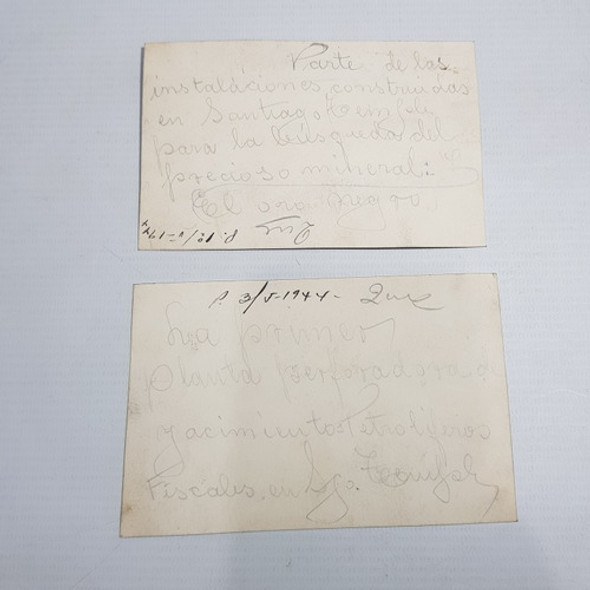 Parte de las
instaláciones construidas
en Santiago Temple
para la búsqueda del
precioso mineral:
El oro negro.
P. 1º/V-1944
P. 3/5-1944-
La primer
Planta perforadora de
Yacimientos Petroliferos
Fiscales, en Sgo. Temple